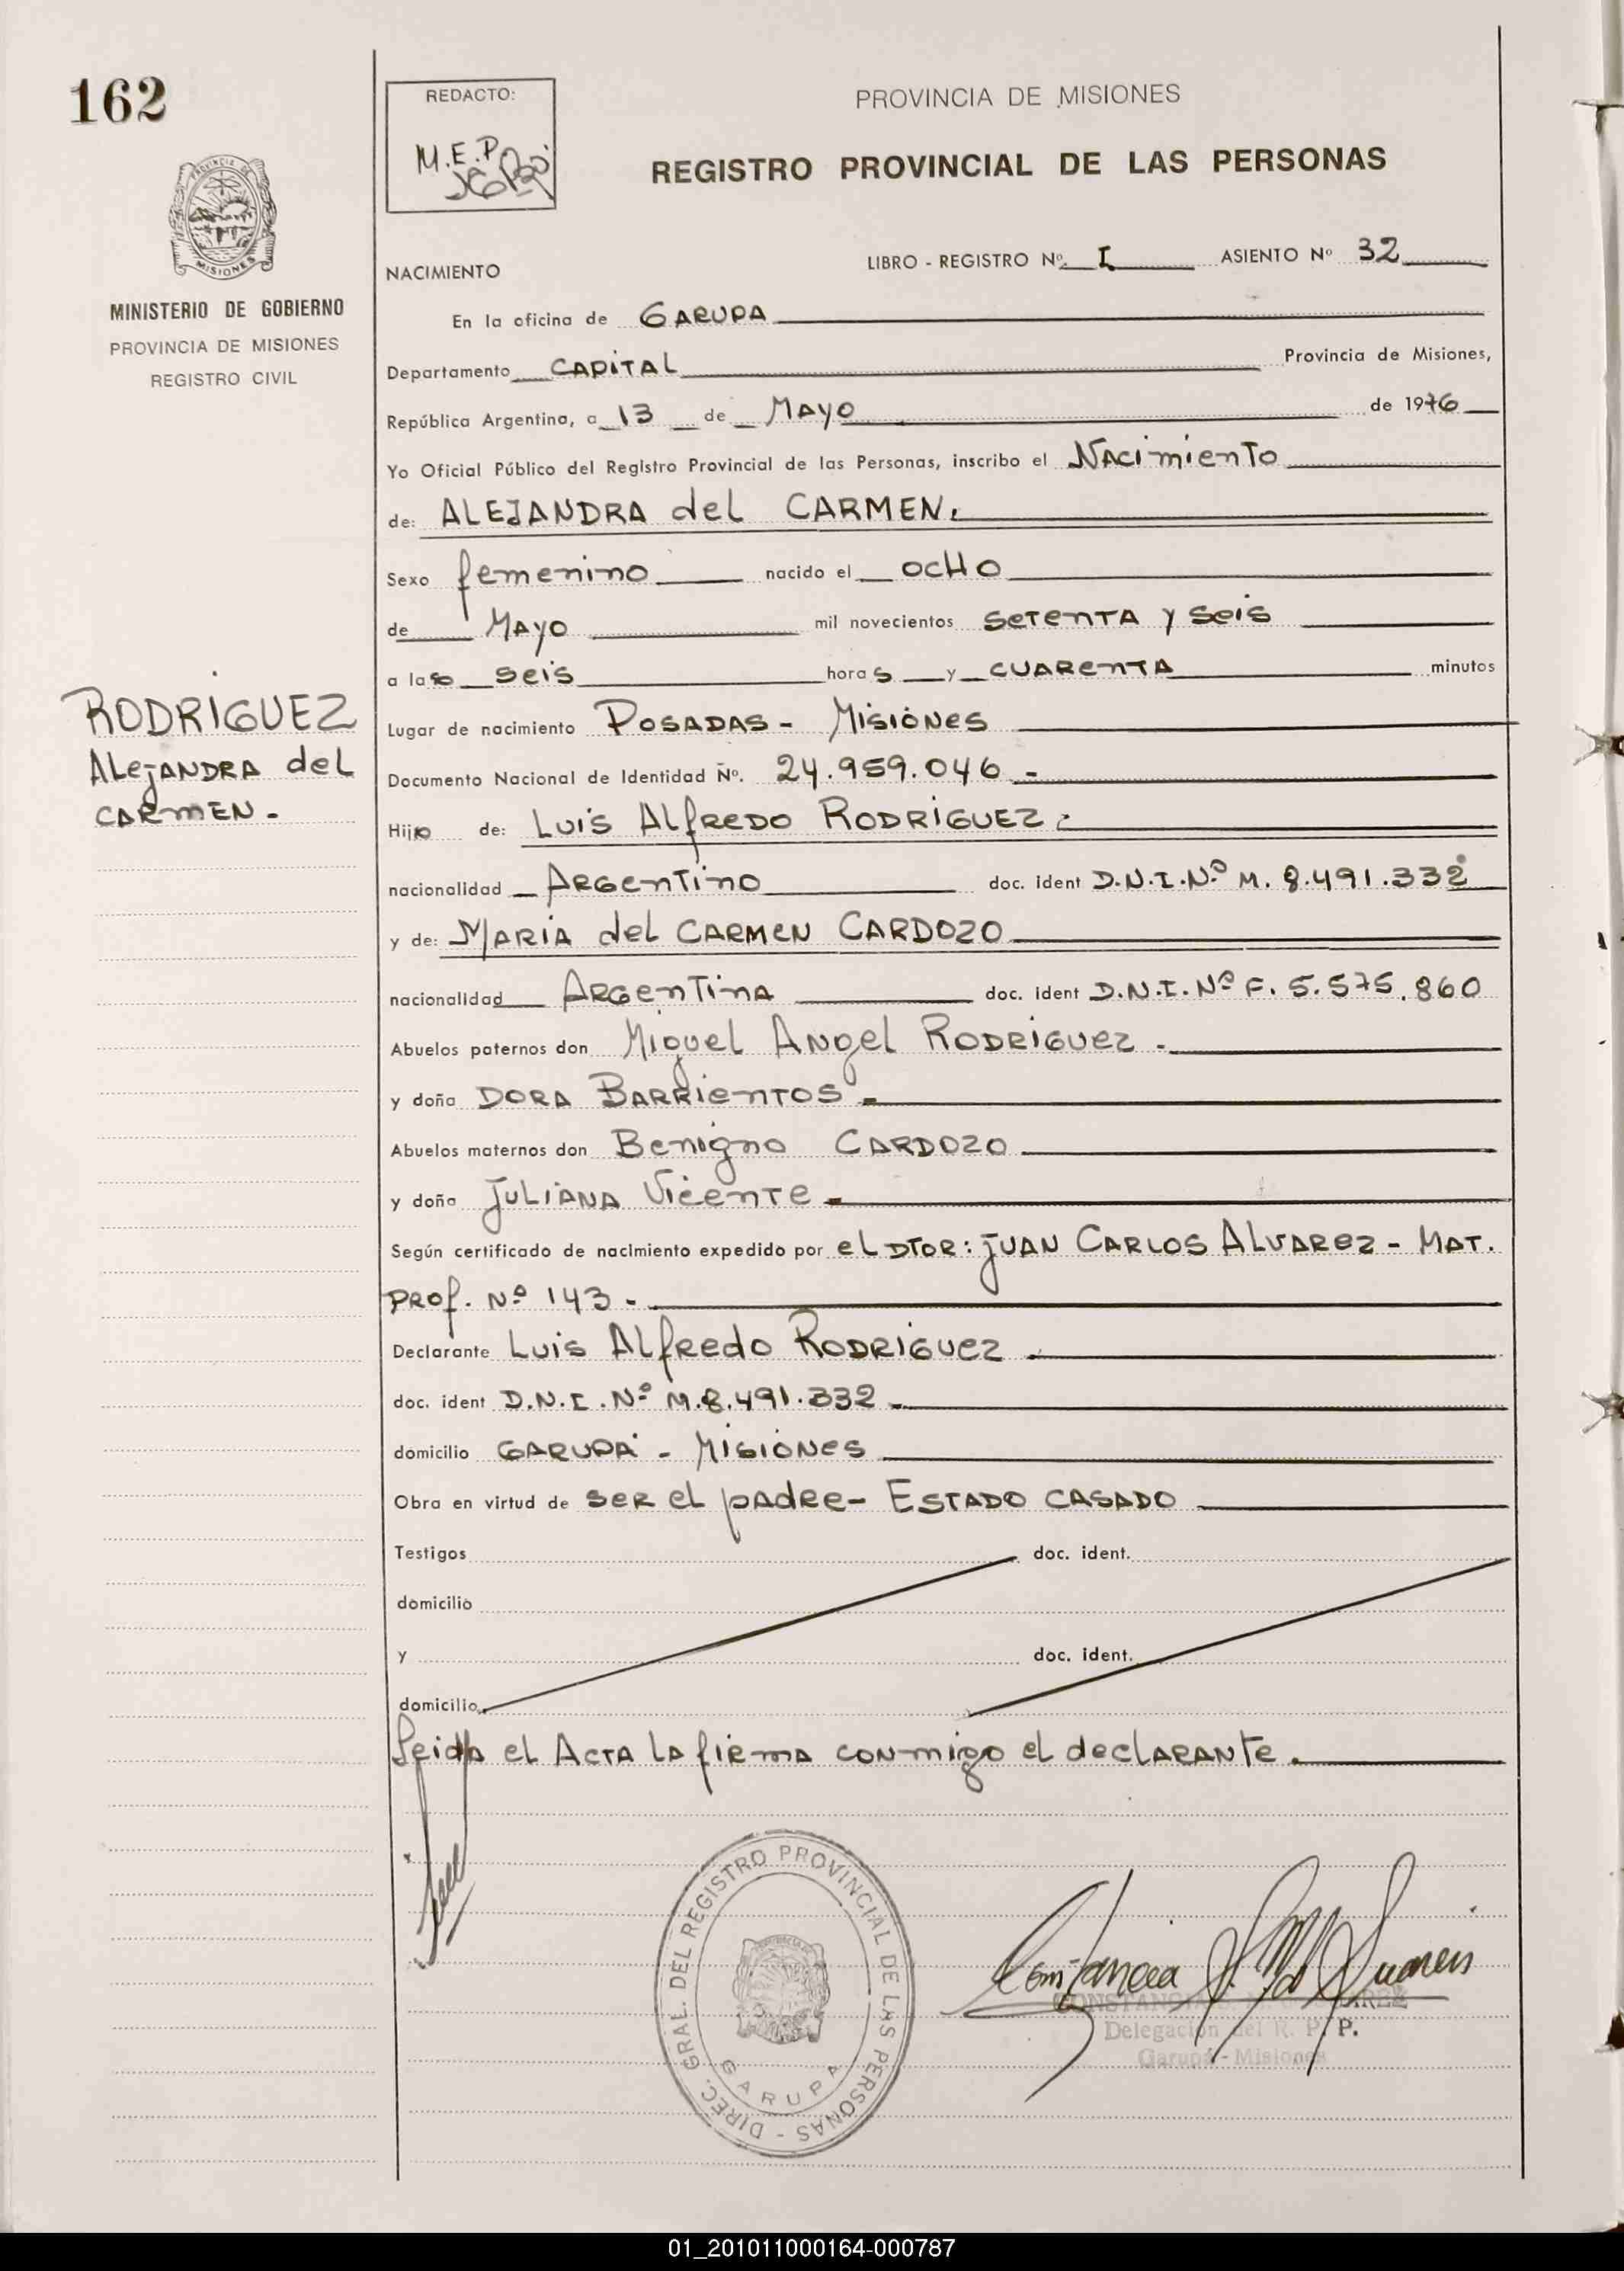 162
REDACTO:
M.E.P.
PROVINCIA DE MISIONES
REGISTRO PROVINCIAL DE LAS PERSONAS
PROVINCIA DE
MISIONES
MINISTERIO DE GOBIERNO
PROVINCIA DE MISIONES
REGISTRO CIVIL
NACIMIENTO LIBRO - REGISTRO Nº I ASIENTO Nº 32
En la oficina de GARUPA
Departamento CAPITAL Provincia de Misiones,
República Argentina, a 13 de MAYO de 1976
Yo Oficial Público del Registro Provincial de las Personas, inscribo el NACimienTo
de: ALEJANDRA del CARMEN.
Sexo femenino nacido el ocHo
de MAYO mil novecientos SeTenTA y Seis
a las seis horas y CUARenTA minutos
RODRIGUEZ
ALejANDRA del
CARMEN.-
Lugar de nacimiento POSADAS - Misiones
Documento Nacional de Identidad Nº. 24.959.046.-
Hija de: Luis Alfredo RODRIGUEZ
nacionalidad ARGenTino doc. ident D.N.I.Nº M. 8.491.332
y de: MARIA del CARMEN CARDOZO
nacionalidad ARGenTinA doc. ident D.N.I.Nº F. 5.575.860
Abuelos paternos don Miguel Angel RODRIGUEZ.-
y doña DORA BARRienTOS.-
Abuelos maternos don Benigno CARDOZO
y doña JULIANA Vicente.-
Según certificado de nacimiento expedido por el DTOR: JUAN CARLOS ALVAREZ - MAT.
PROf. Nº 143.-
Declarante Luis Alfredo RODRIGUEZ
doc. ident D.N.I.Nº M.8.491.332.-
domicilio GARUPÁ - Misiones
Obra en virtud de SER el padre- ESTADO CASADO
Testigos doc. ident.
domicilio
y doc. ident.
domicilio
Leida el ACTA LA firma conmigo el declARANTe.
DIREC. GRAL. DEL REGISTRO PROVINCIAL DE LAS PERSONAS -
GARUPA
Constancia S. M. de Suarez
CONSTANCIA S. M. de SUAREZ
Delegación del R. P. P.
Garupá - Misiones
01_201011000164-000787